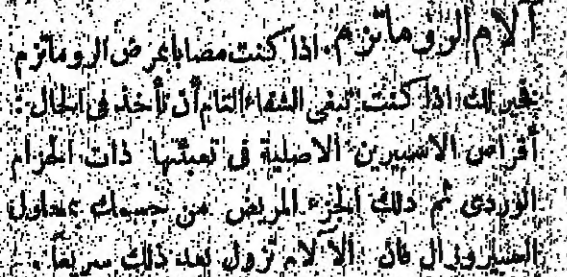 آلام الروماتزم. اذا كنت مصابا بمرض الروماتزم
فخير لك اذا كنت تبغى الشفاء التام أن تأخذ فى الحال:
أقراص الاسبيرين الاصلية فى تعبئتها ذات الحزام
الوردى ثم دلك الجزء المريض من جسمك بمحلول
السبيروزال فان الآلام تزول بعد ذلك سريعاً.